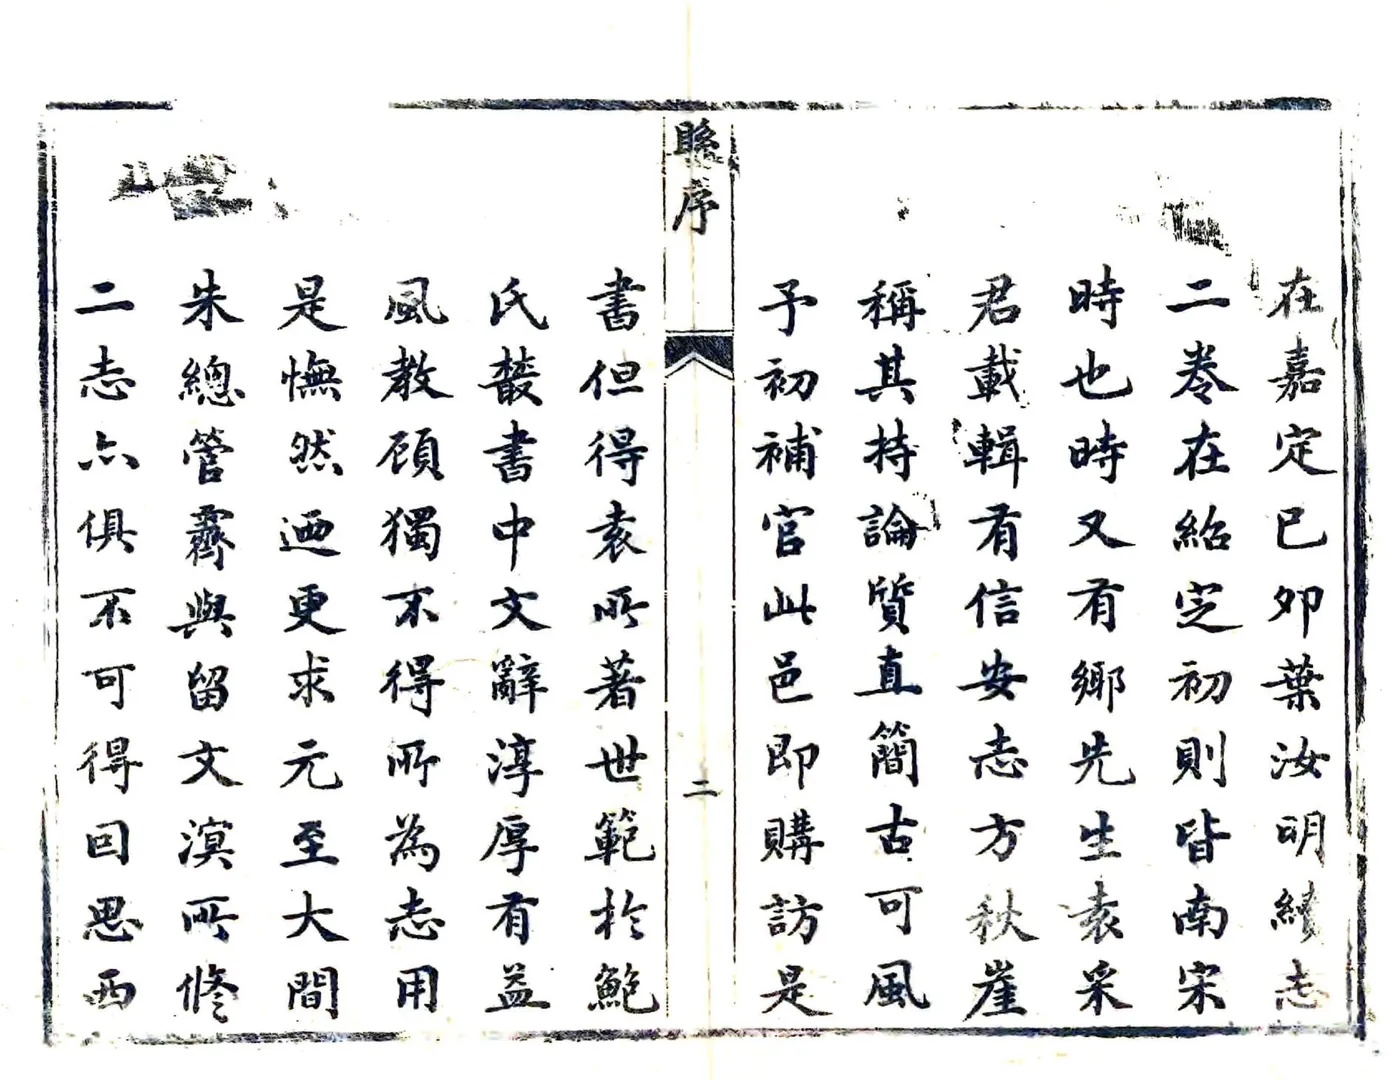 在嘉定已夘葉汝明續志
二卷在紹定初則皆南宋
時也時又有鄉先生袁采
君載輯有信安志方秋崖
稱其持論質直簡古可風
予初補官此邑即購訪是
縣序
二
書但得袁所著世範於鮑
氏叢書中文辭淳厚有益
風教顧獨不得所為志用
是憮然迺更求元至大間
朱總管霽與留文溟所修
二志亦俱不可得回思西